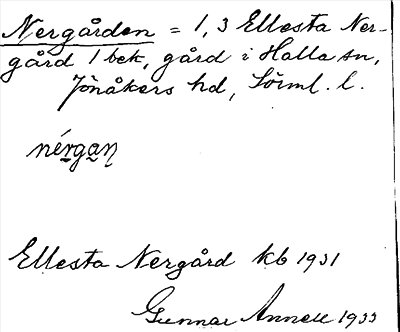 Nergården = 1, 3 Ellesta Ner-
gård 1 bek, gård i Halla sn,
Jönåkers hd, Sörml. l.
nę́rgan
Ellesta Nergård kb 1931
Gunnar Annell 1933